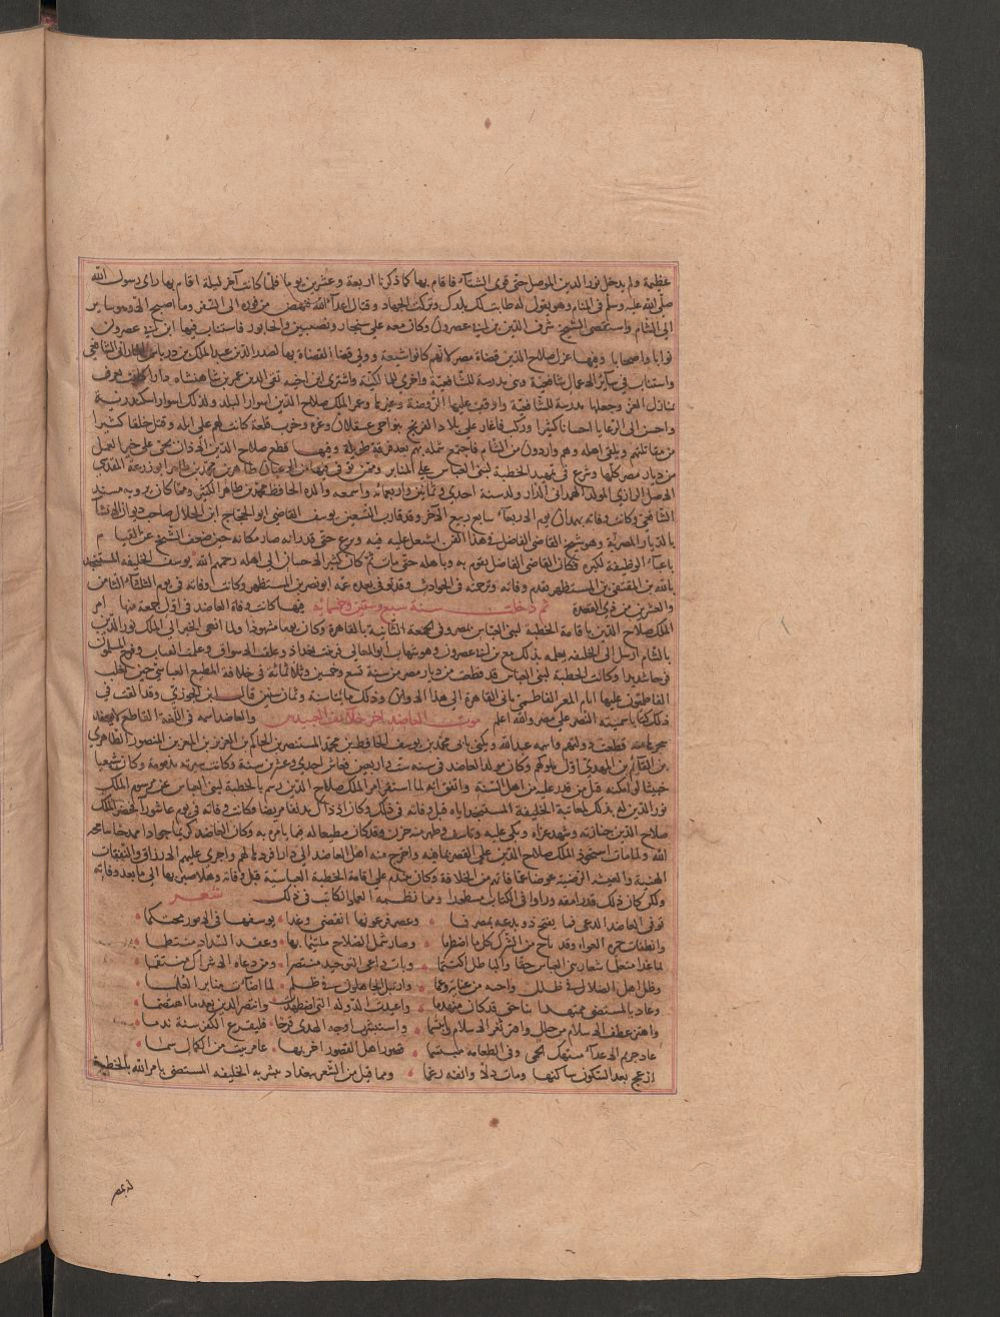 عظيمة ولم يدخل نور الدين الموصل حتى قوى الشتاء فاقام بها كما ذكرنا اربعة وعشرين يوما فلما كانت آخر ليلة اقام بها راى رسول الله
صلى الله عليه وسلم في المنام وهو يقول له طابت لك بلدك وتركت الجهاد وقتال اعداء الله فنهض من فوره الى السفر وما اصبح الا وهو ساير
الى الشام واستقضى الشيخ شرف الدين بن ابى عصرون وكان معه على سنجار ونصيبين والخابور فاستناب فيها ابن ابى عصرون
نوابا واصحابا وفيها عزل صلاح الدين قضاة مصر لانهم كانوا شيعة وولى قضا القضاة بها لصدر الدين عبد الملك بن درباس الماراني الشافعي
واستناب في سائر الاعمال شافعية وبنى مدرسة للشافعية واخرى للمالكية واشترى ابن اخيه تقى الدين عمر بن شاهنشاه دارا كانت تعرف
بمنازل العز وجعلها مدرسة للشافعية واوقف عليها الروضة وغيرها وعمر الملك صلاح الدين اسوار البلد وكذلك اسوار اسكندرية
واحسن الى الرعايا احسانا كثيرا وركب فاغار على بلاد الفرنج بنواحى عسقلان وغزة وخرب قلعة كانت لهم على ايلة وقتل خلقا كثيرا
من مقاتلتهم وتلقى اهله وهم واردون من الشام فاجتمع شمله بهم بعد فرقة طويلة وفيها قطع صلاح الدين الاذان بحى على خير العمل
من ديار مصر كلها وشرع في تمهيد الخطبة لبنى العباس على المنابر وممن توفى فيها من الاعيان طاهر بن محمد بن طاهر ابو زرعة المقدسى
الاصل الرازى المولد الهمدانى الدار ولد سنة احدى وثمانين واربعمائة واسمعه والده الحافظ محمد بن طاهر الكثير ومما كان يرويه مسند
الشافعى وكانت وفاته بهمدان يوم الاربعاء سابع ربيع الآخر وقد قارب التسعين يوسف القاضى ابو الحجاج ابن الخلال صاحب ديوان الانشا
بالديار المصرية وهو شيخ القاضى الفاضل في هذا الفن اشتغل عليه فيه وبرع حتى قدر انه صار مكانه حين ضعف الشيخ عن القيام
باعباء الوظيفة لكبره فكان القاضى الفاضل يقوم به وباهله حتى مات ثم كان كثير الاحسان الى اهله رحمهم الله يوسف الخليفة المستنجد
بالله بن المقتفى بن المستظهر تقدم وفاته وترجمته في الحوادث وقد توفى بعده عمه ابو نصر بن المستظهر وكانت وفاته في يوم الثلاثاء الثامن
والعشرين من ذى القعدة ثم دخلت سنة سبع وستين وخمسمائة فيها كانت وفاة العاضد في اول جمعة منها امر
الملك صلاح الدين باقامة الخطبة لبنى العباس بمصر وفى الجمعة الثانية بالقاهرة وكان يوما مشهودا ولما انتهى الخبر الى الملك نور الدين
بالشام ارسل الى الخليفة يعلمه بذلك مع بن ابى عصرون وهو شهاب ابو المعالى فزينت بغداد وغلقت الاسواق وعملت القباب وفرح المسلمون
فرحا شديدا وكانت الخطبة لبنى العباس قد قطعت من ديار مصر من سنة تسع وخمسين وثلاثمائة في خلافة المطيع العباسى حين تغلب
الفاطميون عليها ايام المعز الفاطمى بانى القاهرة الى هذا الاوان وذلك مائتا سنة وثمان سنين قال ابن الجوزى وقد الفت في
ذلك كتابا سميته النصر على مصر والله اعلم موت العاضد آخر خلفاء العبيديين والعاضد اسمه فى اللغة القاطع لا يعضد
شجرها وبه قطعت دولتهم واسمه عبد الله ويكنى بابى محمد بن يوسف الحافظ بن محمد المستنصر بن الحاكم بن العزيز بن المعز بن المنصور الطاهرى
بن القائم بن المهدى اول ملوكهم وكان مولد العاضد فى سنة ست واربعين فعاش احدى وعشرين سنة وكانت سيرته مذمومة وكان شيعيا
خبيثا لو امكنه قتل من قدر عليه من اهل السنة واتفق انه لما استقر امر الملك صلاح الدين رسم بالخطبة لبنى العباس عن مرسوم الملك
نور الدين له بذلك لمعاتبة الخليفة المستنجد اياه قبل وفاته فى ذلك وكان اذ ذاك مدنفا مريضا وكانت وفاته فى يوم عاشورا فحضر الملك
صلاح الدين جنازته وشهد عزاه وبكى عليه وتاسف وظهر منه حزن وقد كان مطيعا له فيما يامره به وكان العاضد كريما جوادا ممدحا سامحه
الله ولما مات استحوذ الملك صلاح الدين على القصر بما فيه واخرج منه اهل العاضد الى دار افردها لهم واجرى عليهم الارزاق والنفقات
الهنية والعيشة الرضية عوضا عما فاتهم من الخلافة وكان يتندم على اقامة الخطبة العباسية قبل وفاته وهلا صبر بها الى ما بعد وفاته
ولكن كان ذلك قدرا مقدورا وفى الكتاب مسطورا ومما نظمه العماد الكاتب فى ذلك شعر
توفى العاضد الدعى فما يفتح ذو بدعة بمصر فما وعصر فرعونها انقضى وغدا يوسفها فى الامور محتكما
وانطفات جمرة الغواة وقد باح من الشرك كل ما اضطرما وصار شمل الصلاح ملتئما بها وعقد السداد منتظما
لما غدا معلنا شعار بنى العباس حقا والباطل اكتتما وبات داعى التوحيد منتصرا ومن دعاة الاشراك منتقما
وظل اهل الضلال فى ظلل داجية من غيابة وعما وارتبك الجاهلون فى ظلم لما اضاءت منابر العلما
وعاد بالمستضى ممتهدا بناء حق قد كان منهدما واعيدت الدولة التى اضطهدت وانتصر الدين بعدما اهتضما
واهتز عطف الاسلام من جلل وافتر ثغر الاسلام وابتسما واستبشرت اوجه الهدى فرحا فليقرع الكفر سنه ندما
عاد حريم الاعداء منتهك الحمى وفى الطغاة منقسما قصور اهل القصور اخربها عامر بيت من الكمال سما
ازعج بعد السكون ساكنها ومات ذلا وانفه رغما ومما قيل من الشعر ببغداد يبشر به الخليفة المستضى بامر الله بالخطبة
له بمصر